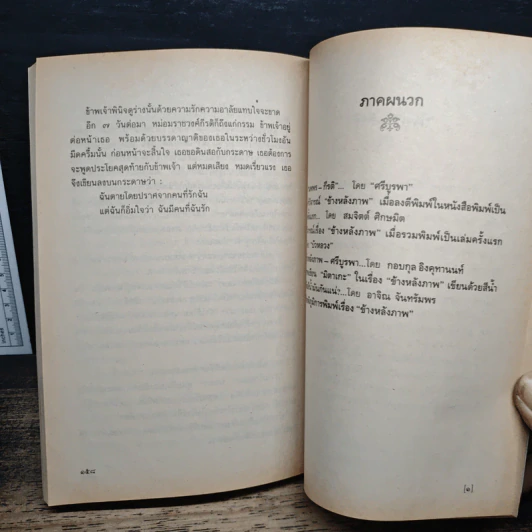 ข้าพเจ้าพินิจดูร่างนั้นด้วยความรักความอาลัยแทบใจจะขาด
อีก ๗ วันต่อมา หม่อมราชวงศ์กีรติก็ถึงแก่กรรม ข้าพเจ้าอยู่
ต่อหน้าเธอ พร้อมด้วยบรรดาญาติของเธอในระหว่างชั่วโมงอัน
มืดครึ้มนั้น ก่อนหน้าจะสิ้นใจ เธอขอดินสอกับกระดาษ เธอต้องการ
จะพูดประโยคสุดท้ายกับข้าพเจ้า แต่หมดเสียง หมดเรี่ยวแรง เธอ
จึงเขียนลงบนกระดาษว่า :
ฉันตายโดยปราศจากคนที่รักฉัน
แต่ฉันก็อิ่มใจว่า ฉันมีคนที่ฉันรัก
๑๕๘
ภาคผนวก
กีรติ"... โดย "ศรีบูรพา"
"ข้างหลังภาพ" เมื่อลงตีพิมพ์ในหนังสือพิมพ์เป็น
โดย สมจิตต์ ศิกษมัต
เรื่อง "ข้างหลังภาพ" เมื่อรวมพิมพ์เป็นเล่มครั้งแรก
"บัวหลวง"
– ศรีบูรพา...โดย กอบกุล อิงคุทานนท์
"มิตาเกะ" ในเรื่อง "ข้างหลังภาพ" เขียนด้วยสีน้ำ
โดย อาจิณ จันทรัมพร
การพิมพ์เรื่อง "ข้างหลังภาพ"
[๑]